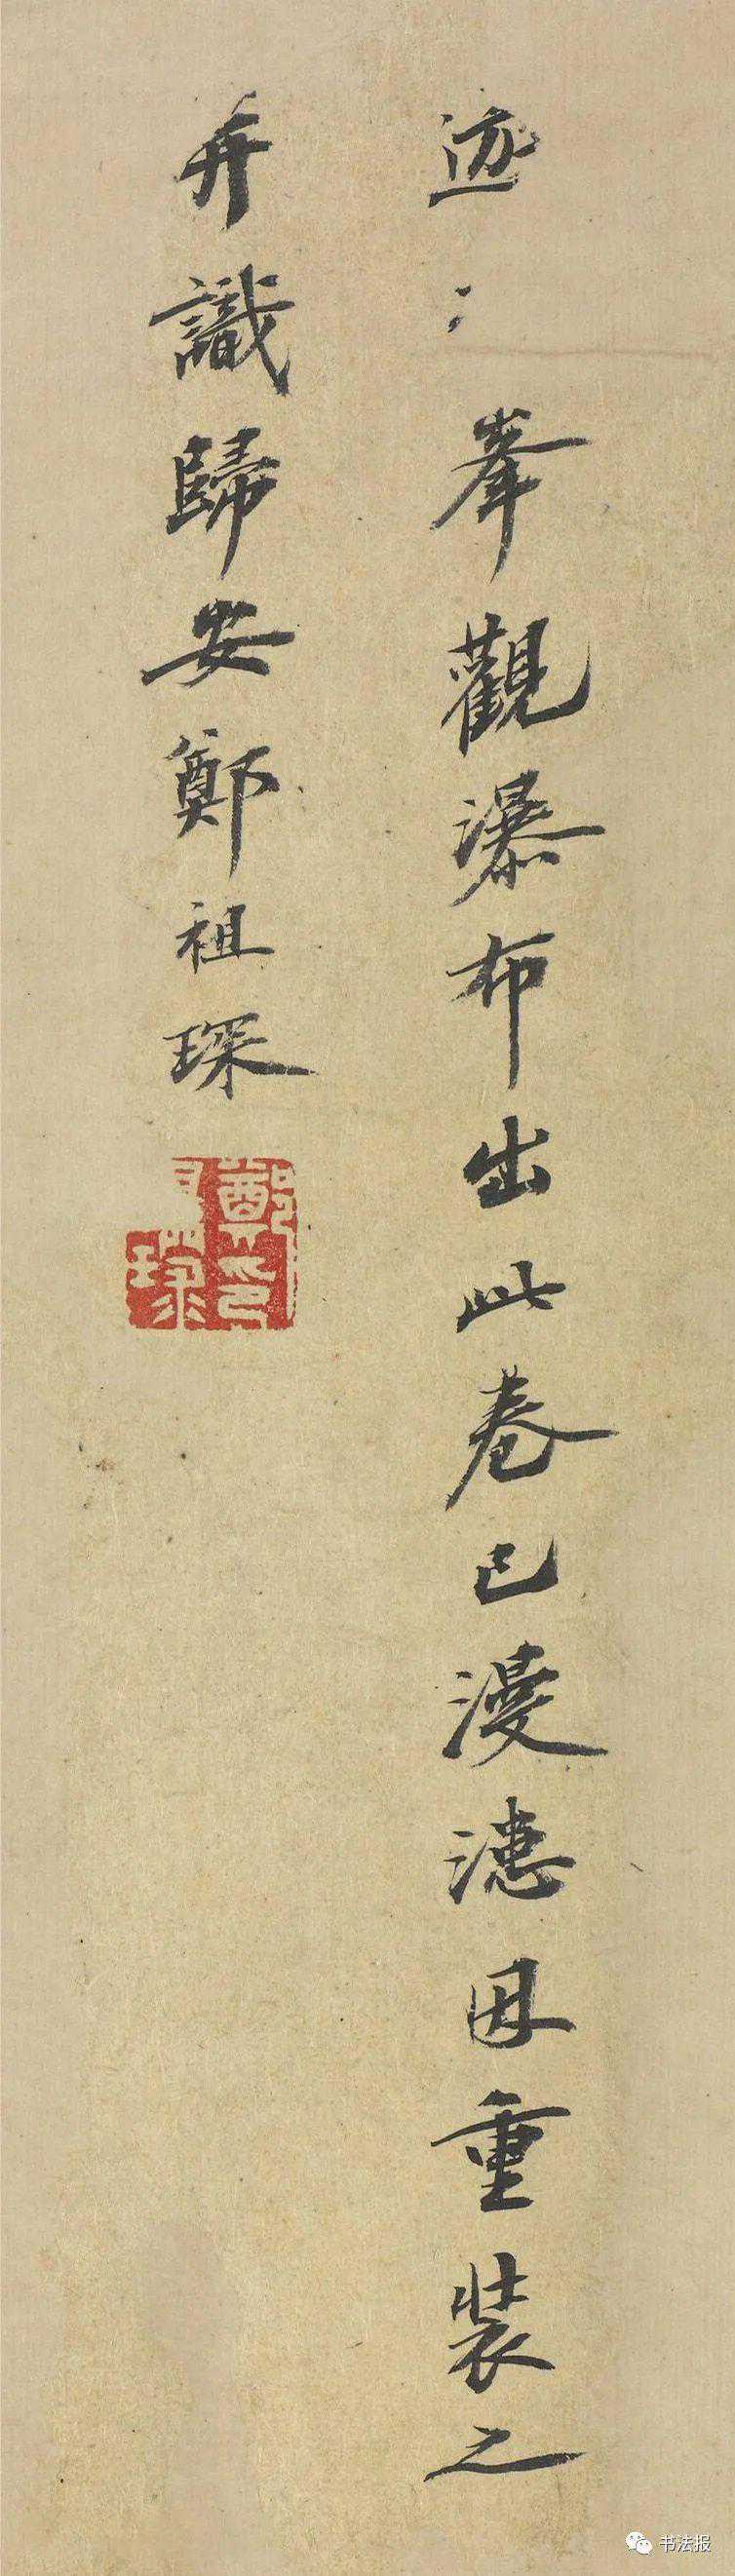 迹峯觀瀑布出此卷已漫漶因重裝之
并識歸安鄭祖琛
鄭印祖琛
书法报